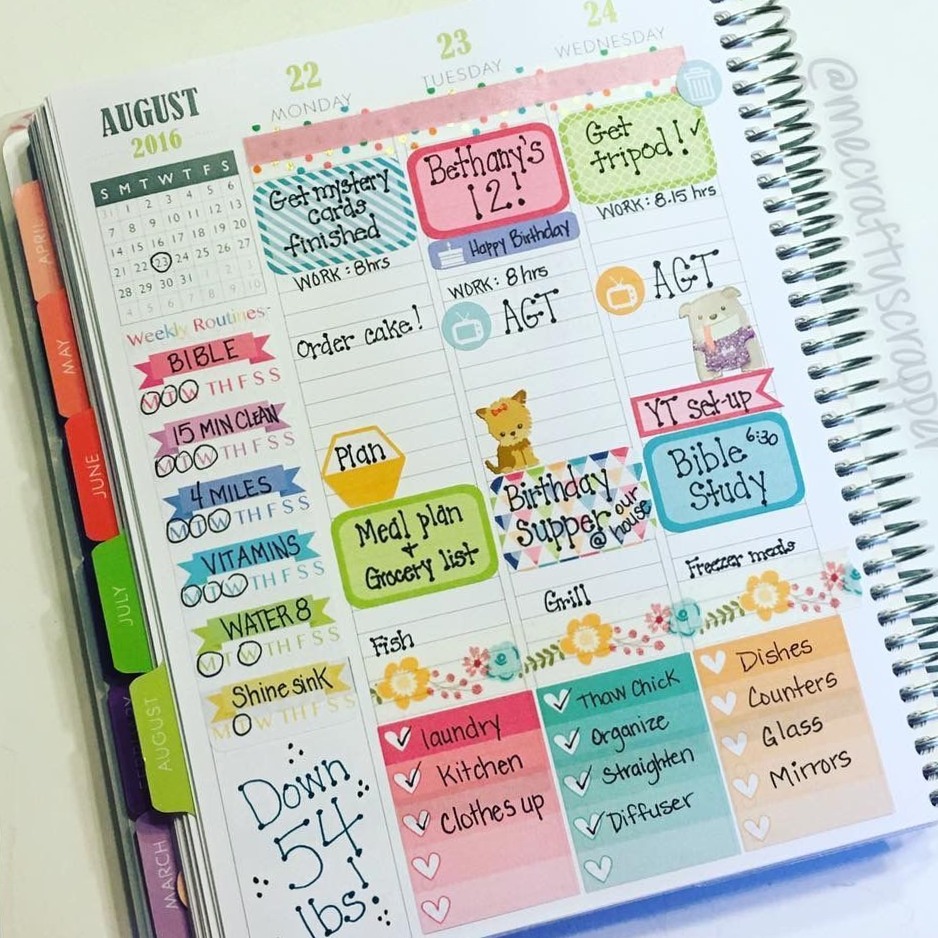 AUGUST
2016
S M T W T F S
31 1 2 3 4 5 6
7 8 9 10 11 12 13
14 15 16 17 18 19 20
21 22 23 24 25 26 27
28 29 30 31 1 2 3
4 5 6 7 8 9 10
Weekly Routines
BIBLE
M T W TH F S S
15 MIN CLEAN
M T W TH F S S
4 MILES
M T W TH F S S
VITAMINS
M T W TH F S S
WATER 8
M T W TH F S S
Shine sink
M T W TH F S S
Down
54
lbs!
22
MONDAY
Get mystery
cards
finished
WORK: 8hrs
Order cake!
Plan
Meal plan
+
Grocery list
Fish
laundry
Kitchen
Clothes up
23
TUESDAY
Bethany's
12!
Happy Birthday
WORK: 8hrs
AGT
Birthday
Supper @ our house
Grill
Thaw Chick
Organize
Straighten
Diffuser
24
WEDNESDAY
Get
tripod!
WORK: 8.15 hrs
AGT
YT set-up
Bible 6:30
Study
Freezer meals
Dishes
Counters
Glass
Mirrors
APRIL
MAY
JUNE
JULY
AUGUST
MARCH